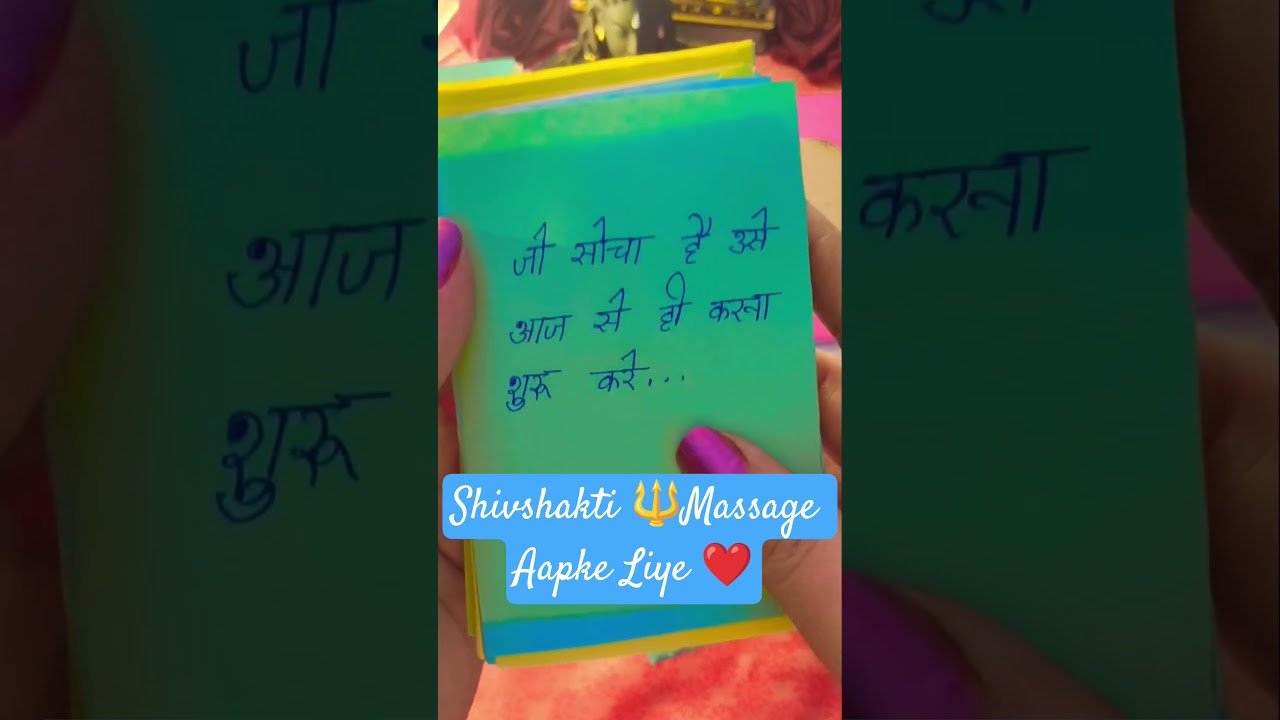 जो सोचा है उसे
आज से ही करना
शुरू करे...
Shivshakti 🔱Massage
Aapke Liye ❤️